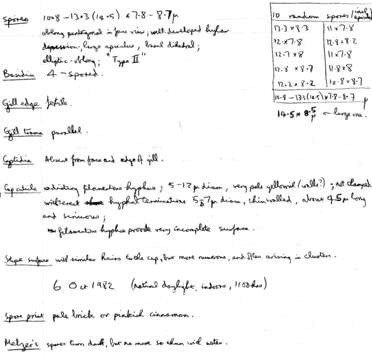 Spores 10·8 – 13·3 (14·5) x 7·8 – 8·7 μ
oblong pentagonal in face view, well-developed hyaline
depression, large apiculus, basal dihedral;
elliptic-oblong; "Type II"
10 random spores
13·3 x 8·3 11 x 7·8
12 x 7·8 12·8 x 8·2
12·7 x 8 11 x 7·8
12·8 x 8·7 11·8 x 8
12·2 x 8·2 10·8 x 8·7
10·8 – 13·3 (14·5) x 7·8 – 8·7 μ
14·5 x 8·5 μ large one.
Basidia 4-spored.
Gill edge fertile.
Gill trama parallel.
Cystidia Absent from face and edge of gill.
Cap cuticle radiating filamentous hyphae; 5–12 μ diam, very pale yellowish (walls?); not clamped
with erect hyphal terminations 5–7 μ diam, thin walled, about 45 μ long
and sinuous;
filamentous hyphae provide very incomplete surface.
Stipe surface with similar hairs to the cap, but more numerous, and often arising in clusters.
6 Oct 1982 (natural daylight, indoors, 1100 hrs)
Spore print pale brick or pinkish cinnamon.
Melzer's spores turn dark, but no more so than with water.